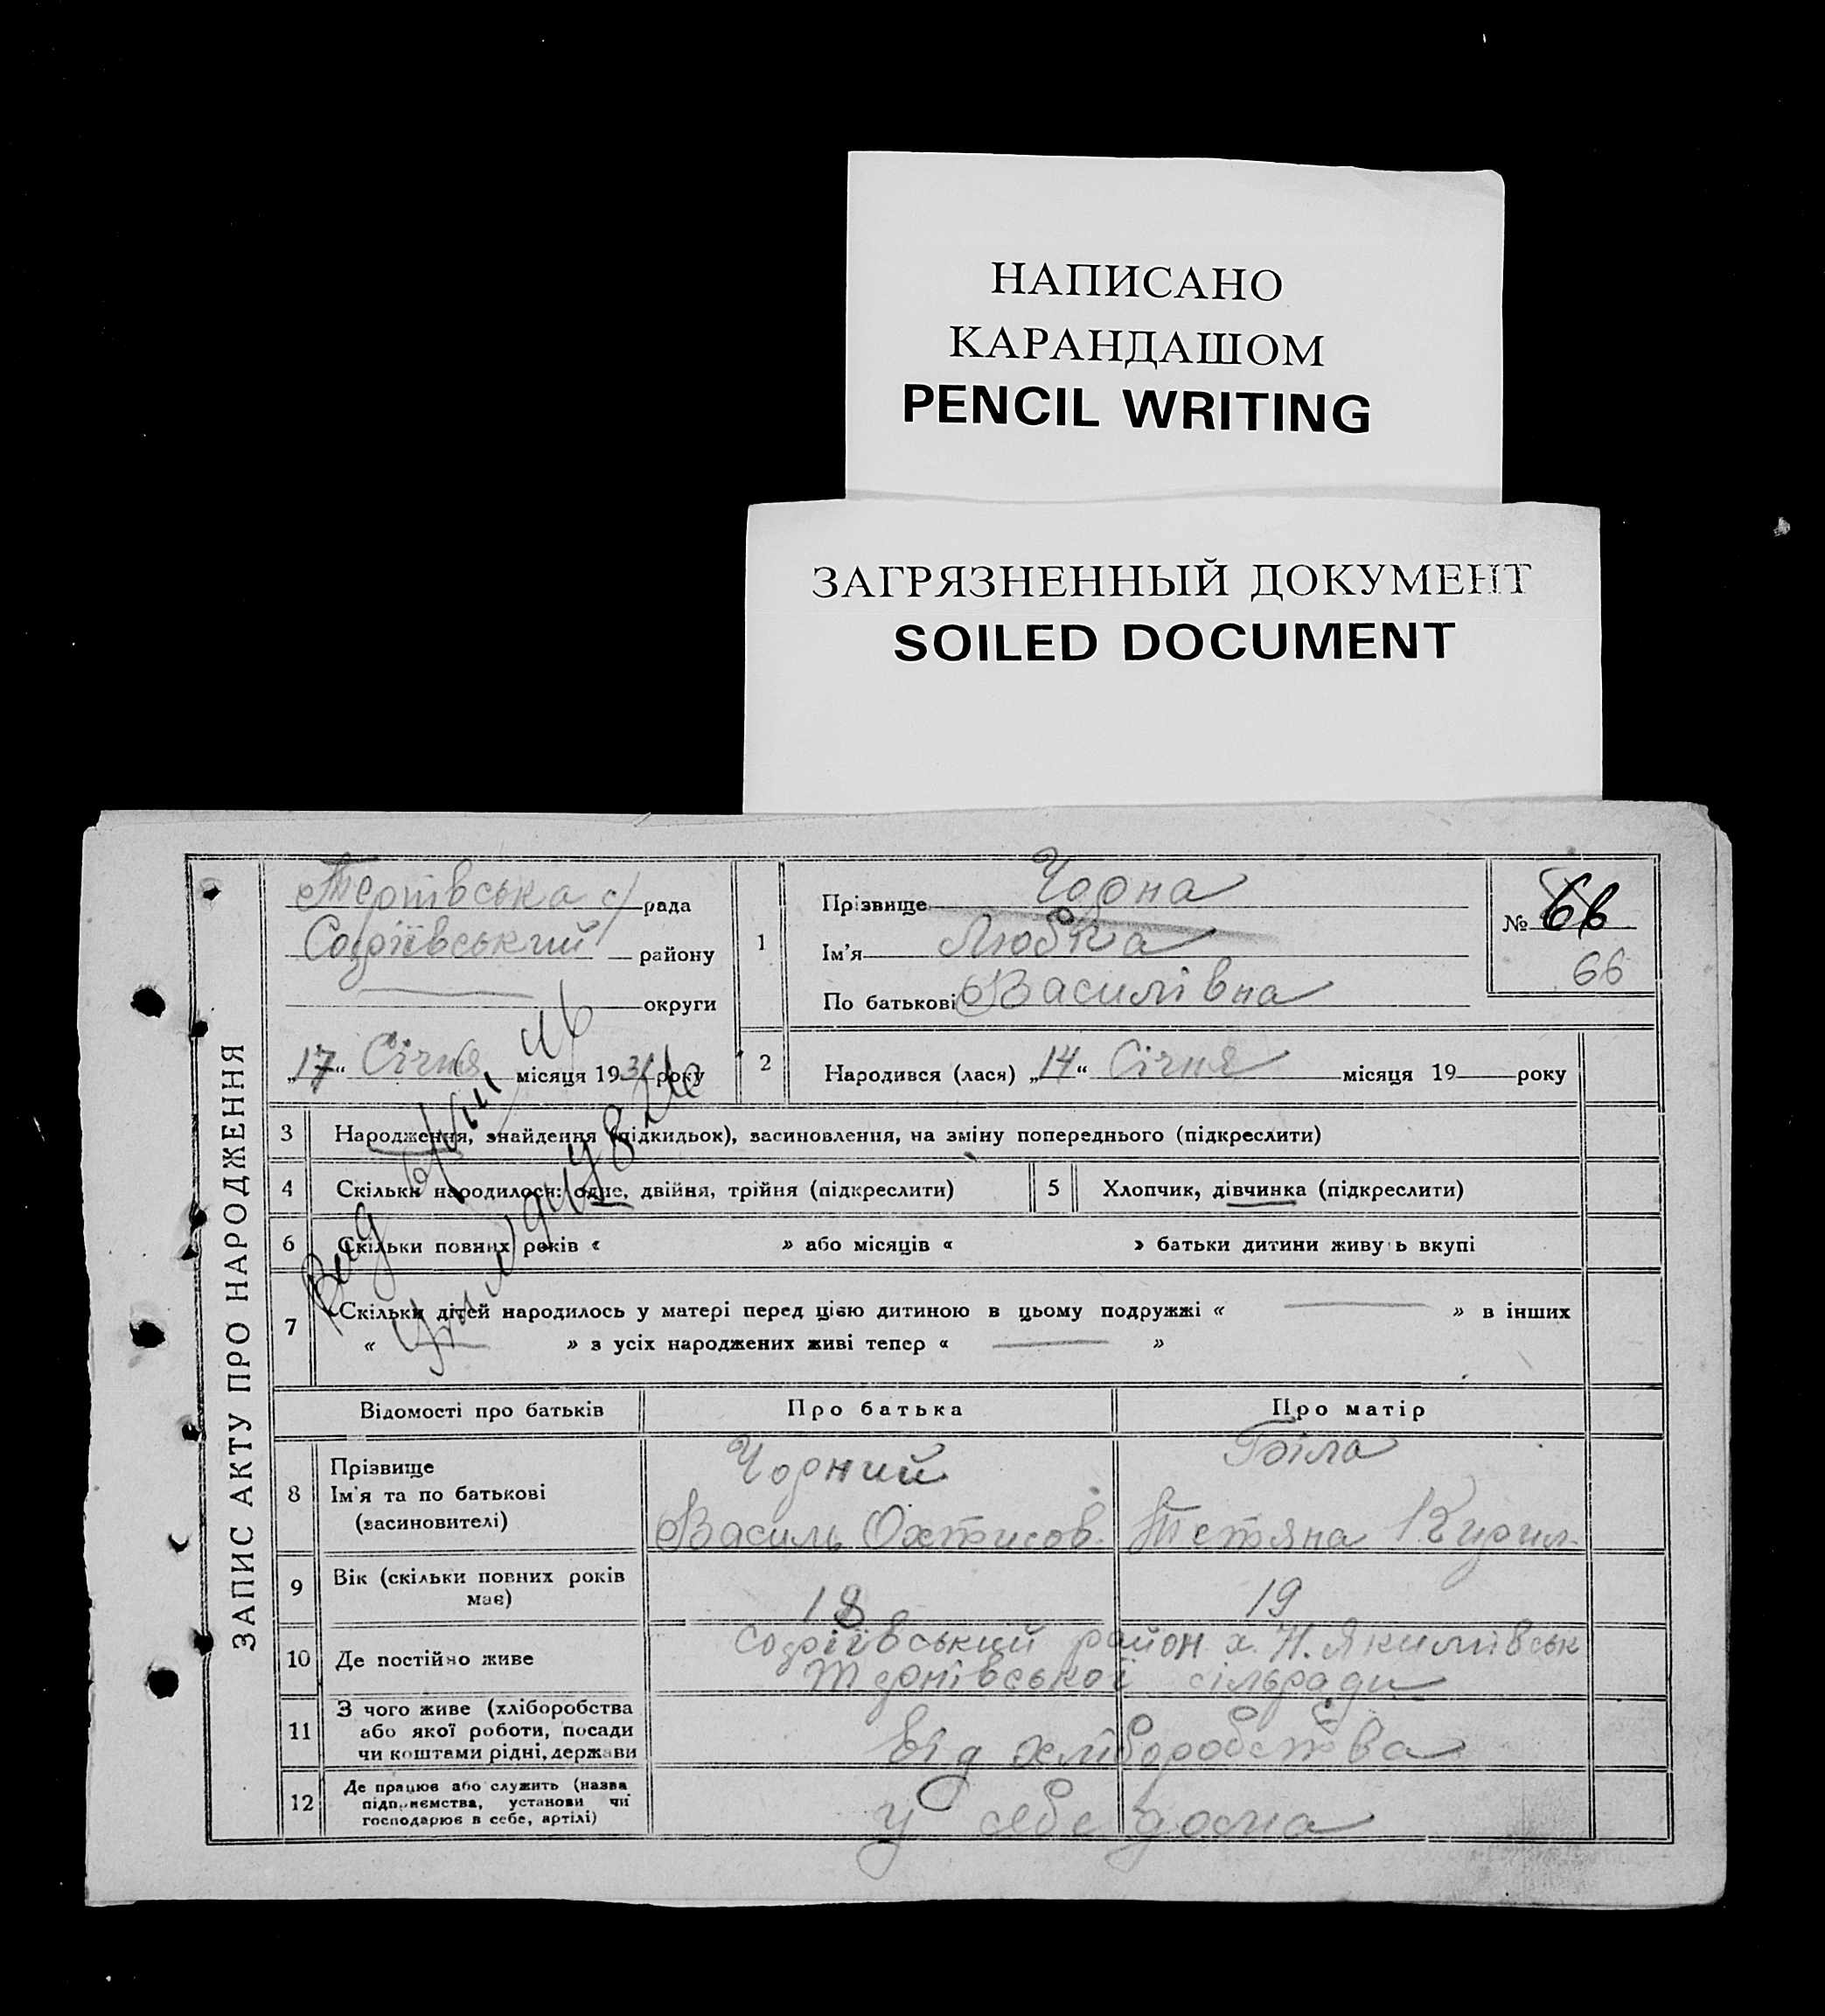 НАПИСАНО
КАРАНДАШОМ
PENCIL WRITING
ЗАГРЯЗНЕННЫЙ ДОКУМЕНТ
SOILED DOCUMENT
ЗАПИС АКТУ ПРО НАРОДЖЕННЯ
с/рада
Софіївський району
округи
„17“ Січня місяця 1931 року
1
Прізвище Чорна
Ім'я Любка
По батькові Василівна
№ 66
66
2 Народився (лася) „14“ Січня місяця 19 року
3 Народження, знайдення (підкидьок), засиновлення, на зміну попереднього (підкреслити)
4 Скільки народилося: одне, двійня, трійня (підкреслити)
5 Хлопчик, дівчинка (підкреслити)
6 Скільки повних років « » або місяців « » батьки дитини живу ь вкупі
7 Скільки дітей народилось у матері перед цією дитиною в цьому подружжі « — » в інших
« — » з усіх народжених живі тепер « — »
Відомості про батьків Про батька Про матір
8 Прізвище
Ім'я та по батькові
(засиновителі)
Чорний
Василь Охтисов.
Біла
Тетяна Кирил.
9 Вік (скільки повних років
має)
18 19
10 Де постійно живе
Софіївський район х. Н. Якимівськ
сільради
11 З чого живе (хліборобства
або якої роботи, посади
чи коштами рідні, держави
від хліборобства
12 Де працює або служить (назва
підприємства, установи чи
господарює в себе, артілі)
у себе дома